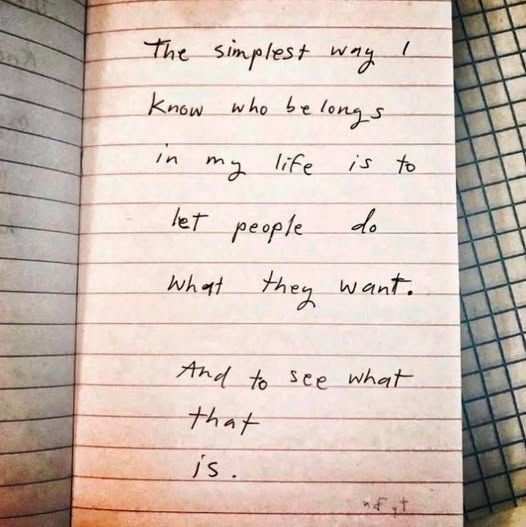 The simplest way I
know who belongs
in my life is to
let people do
what they want.
And to see what
that
is.